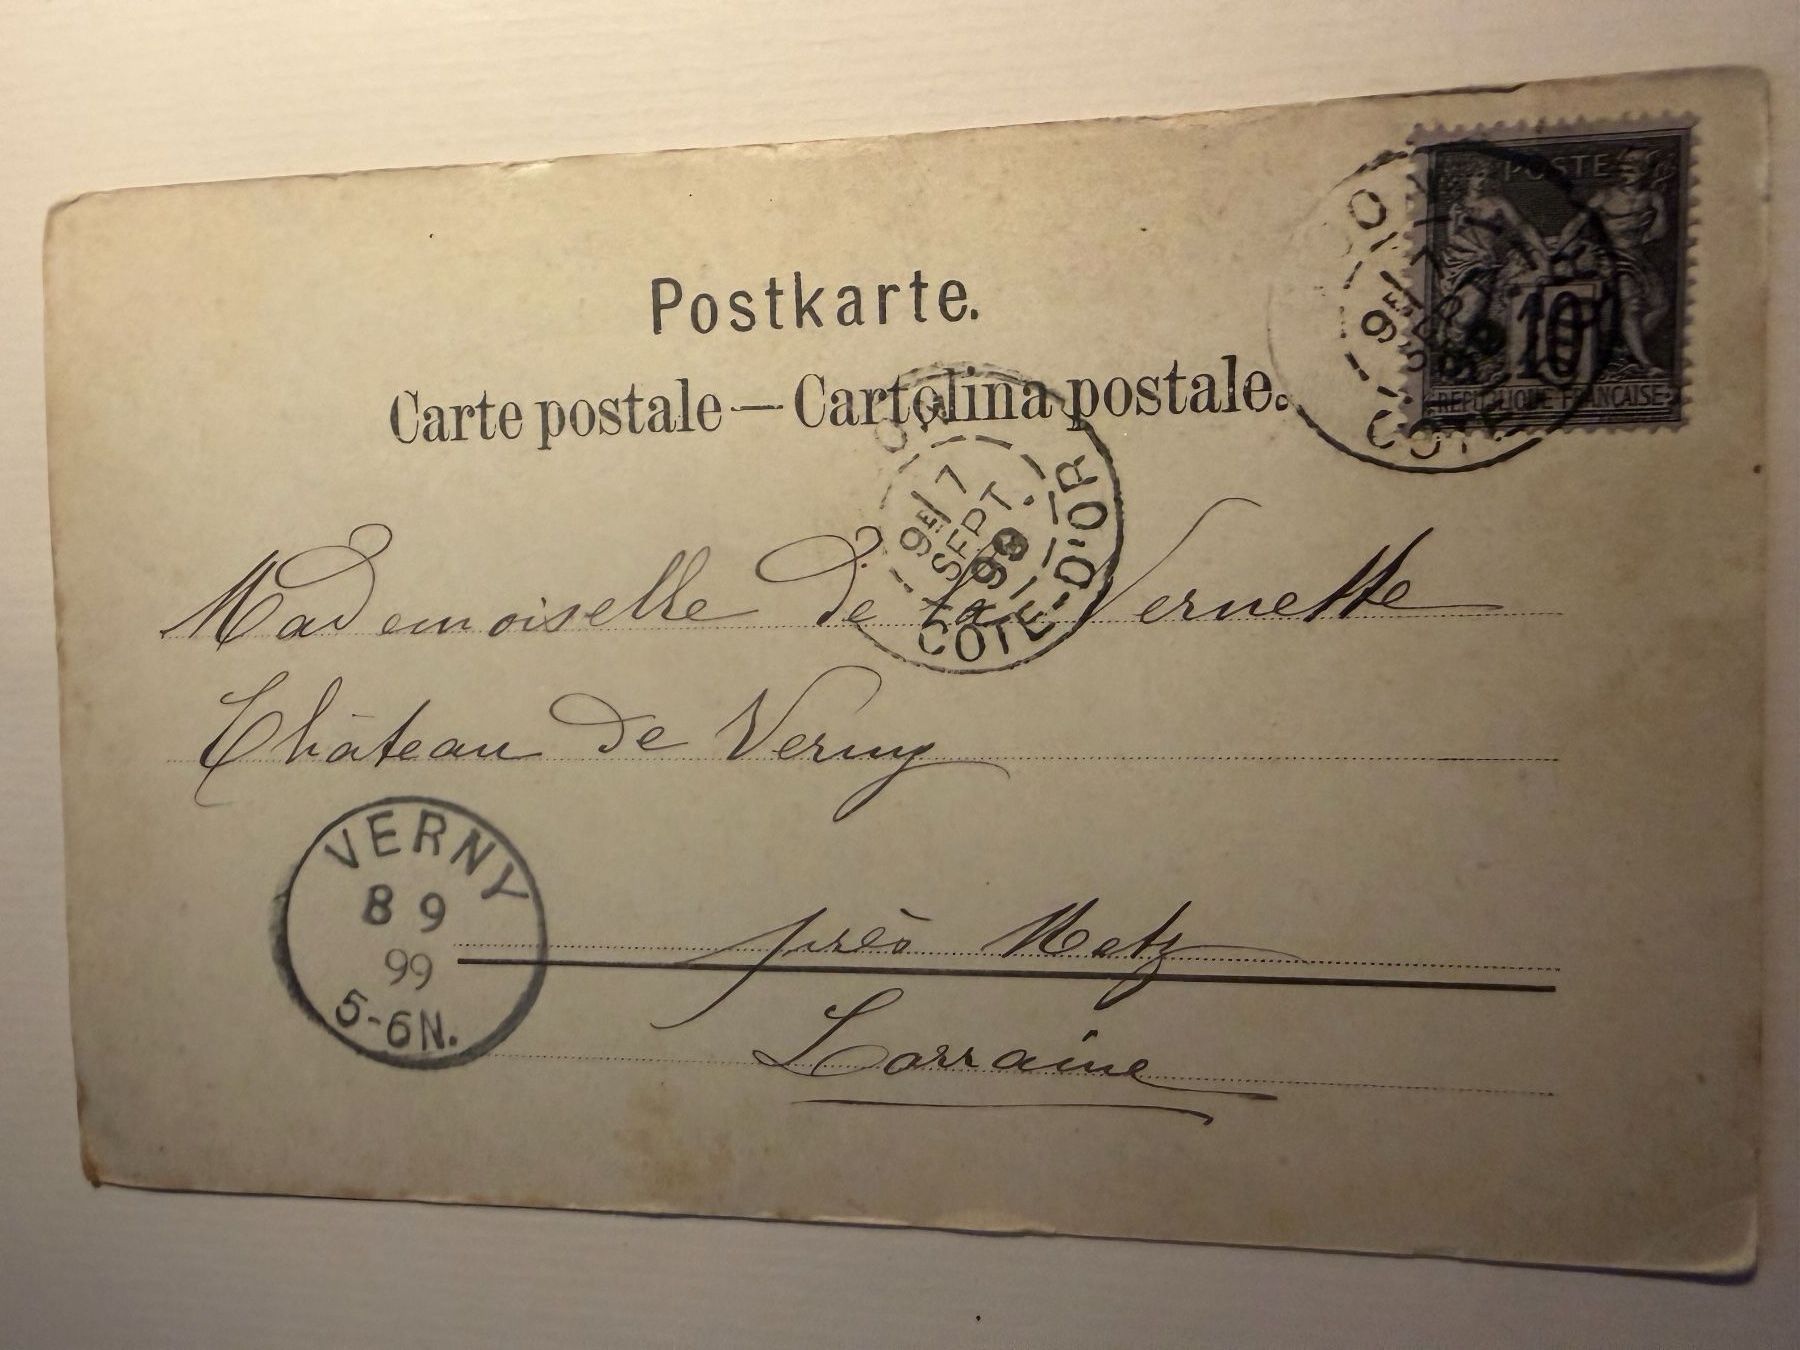 POSTE
10
REPUBLIQUE FRANÇAISE
Postkarte.
Carte postale — Cartolina postale.
9E/ 7
SEPT.
99
COTE-D'OR
Mademoiselle de la Vernette
Château de Verny
VERNY
8 9
99
5-6N.
près Metz
Lorraine